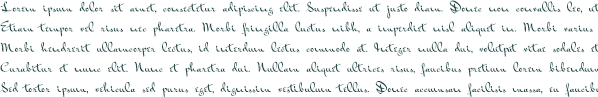 Lorem ipsum dolor sit amet, consectetur adipiscing elit. Suspendisse at justo diam. Donec non convallis leo, ut
Etiam tempor vel risus nec pharetra. Morbi fringilla luctus nibh, a imperdiet nisl aliquet in. Morbi varius
Morbi hendrerit ullamcorper lectus, id interdum lectus commodo at. Integer nulla dui, volutpat vitae sodales et
Curabitur et nunc elit. Nunc et pharetra dui. Nullam aliquet ultrices risus, faucibus pretium lorem bibendum
Sed tortor ipsum, vehicula sed purus eget, dignissim vestibulum tellus. Donec accumsan facilisis massa, eu faucibus